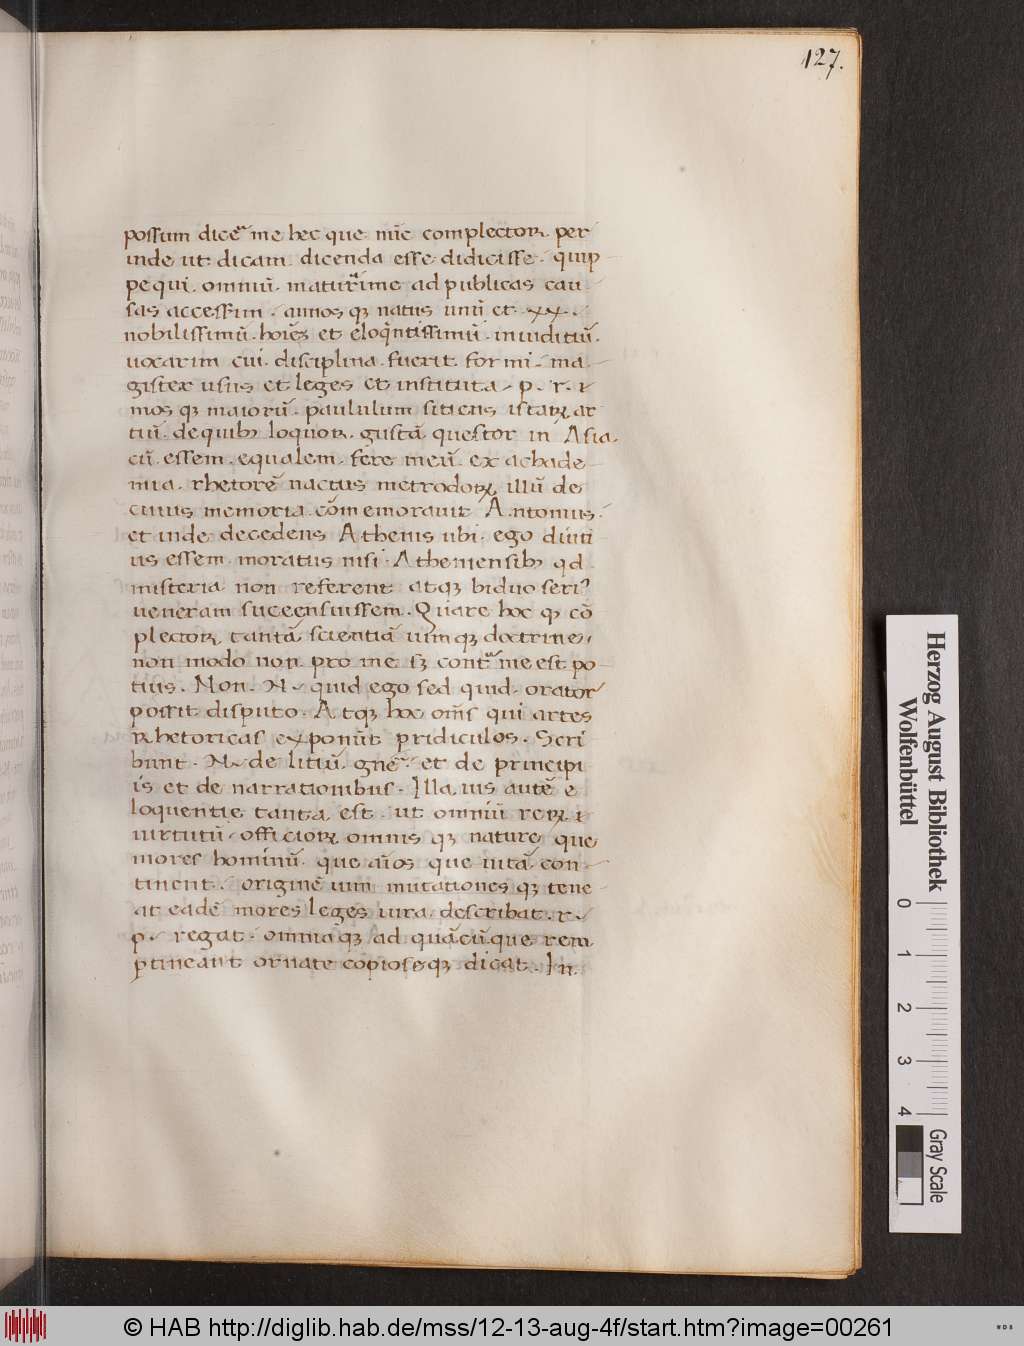 127.
possum dicer̃ me hec que nũc complector. per
inde ut dicam. dicenda esse didicisse. quip
pe qui. omniũ. maturr̃ime ad publicas cau
sas accessim. annos qꝫ natus unũ et xx.
nobilissimũ. hoieʒ et eloqñtissimũ. in iuditiũ.
uocarim cui. disciplina. fuerit. for mi. ma
gister usus et leges et instituta. p. r. &
mos qꝫ maiorũ. paululum sitiens istaꝝ ar
tiũ. de quibꝰ loquor. gustã questor in Asia.
cũ. essem. equalem. fere meũ. ex achade
mia. rhetorẽ nactus metrodoꝝ illũ de
cuius memoria. cõmemorauit Antonius.
et inde decedens Athenis ubi. ego diuti
us essem. moratus nisi. Atheniensibꝰ qd
misteria non referent atqꝫ biduo seriꝰ
ueneram succensuissem. Quare hoc qꝫ cõ
plector. tantã scientiã uimqꝫ doctrine.
non modo non pro me sʒ contr̃ me est po
tius. Non. N. quid ego sed quid. orator
possit disputo. Atqꝫ hoc om̃s qui artes
rhetoricas exponũt pridiculos. Scri
bunt. N. de litiũ. gnẽ. et de principi
is et de narrationibus. Illa uis autẽ e
loquentie tanta est. ut omniũ reꝝ &
uirtutũ. officioꝝ omnis qꝫ nature que
mores hominũ. que aĩos que uitã. con
tinent. originẽ uim mutationes qꝫ tene
at eadẽ mores leges iura. describat. r.
p. regat. omniaqꝫ ad quãcũque rem
ꝑtineant ornate copioseqꝫ dicat. In
Herzog August Bibliothek
Wolfenbüttel
0 1 2 3 4
Gray Scale
© HAB http://diglib.hab.de/mss/12-13-aug-4f/start.htm?image=00261